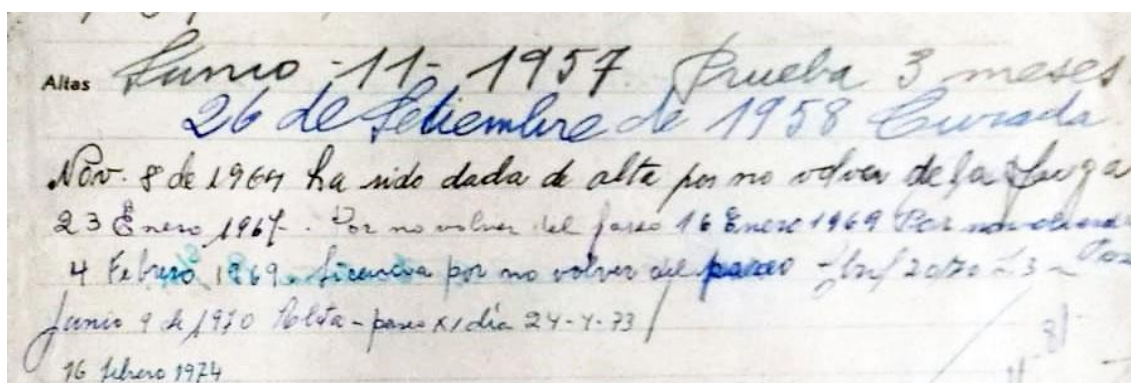 Altas Junio - 11 - 1957. Prueba 3 meses
26 de Setiembre de 1958 Curada.
Nov. 8 de 1964 ha sido dada de alta por no volver de la fuga
23 Enero 1967. Por no volver del paseo 16 Enero 1969 Por no volver
4 Febrero 1969. Licencia por no volver del paseo
Junio 9 de 1970 Alta - paseo x 1 día 24-4-73
16 febrero 1974